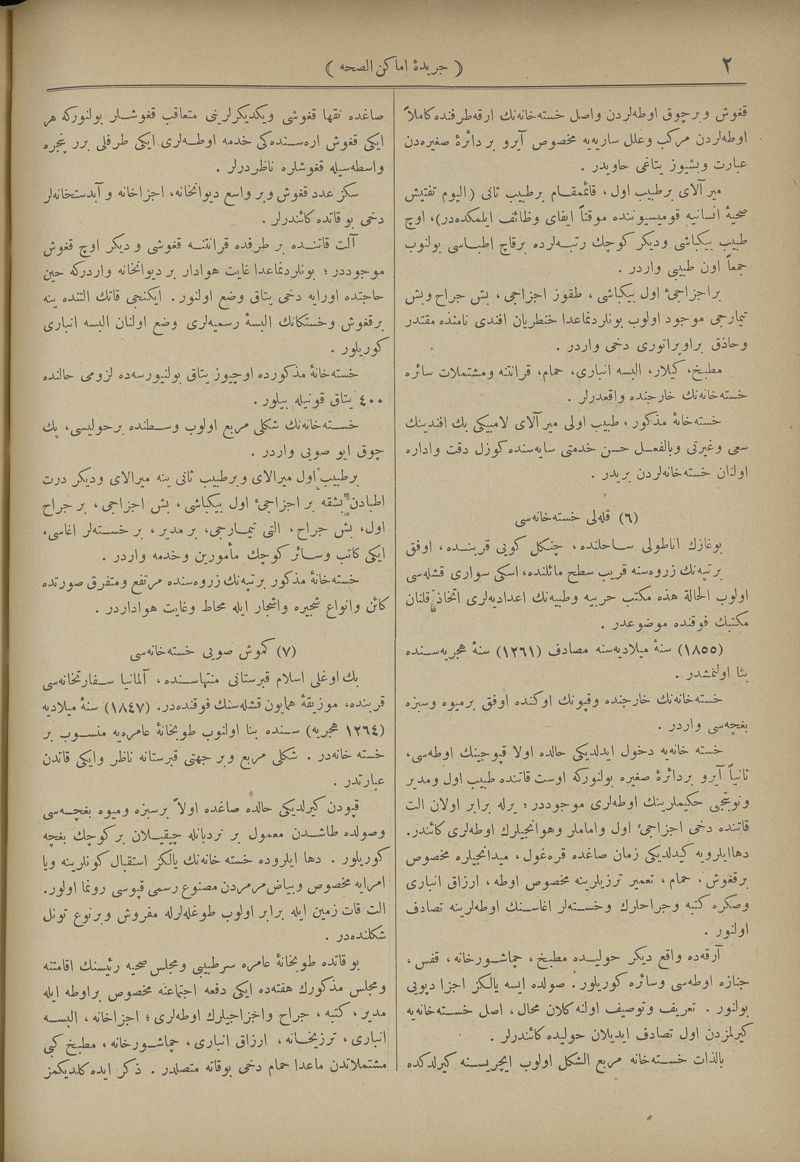 ٢
﴿ جريدۀ اماكن الصحه ﴾
قغوش و برچوق اوطه‌لردن واصل خسته‌خانه‌نك ارقه‌طرفنده كاملاً
اوطه‌لردن مركب وعلل ساريه‌يه مخصوص آيرو بر دائرۀ صغيره‌دن
عبارت وبشيوز يتاغى حاويدر .
ميرآلاى برطبيب اول ، قائمقام برطبيب ثانى (اليوم تفتيش
صحيۀ انسانيه قوميسيوننده موقتاً ايفاى وظائف ايلمكده‌در)، اوچ
طبيب بيكباشى وديكر كوچك رتبه‌لرده برقاچ اطباسى بولنوب
جمعاً اون طبيبى واردر .
براجزاجئ اول بيكباشى ، طقوز اجزاجى ، بش جراح وبش
تيمارجى موجود اولوب بونلردنماعدا خنطريان افندى نامنده مقتدر
وحاذق براوپراتورى دخى واردر .
مطبخ، كيلار، البسه انبارى، حمام، قرانتنه ومشتملات سائره
خسته‌خانه‌نك خارجنده واقعدرلر .
خسته‌خانۀ مذكور ، طبيب اولى ميرآلاى لامبيكى بك افندينك
سعى وغيرتى وبالفعل حسن خدمتى سايه‌سنده كوزل دقت واداره
اولنان خسته‌خانه‌لردن بريدر .
(٦) قله‌لى خسته‌خانه‌سى
بوغازك اناطولى ساحلنده ، چنكل كويى قربنده ، اوفق
برتپه‌نك زروه‌سنه قريب سطح مائلنده، اسكى سوارى قشله‌سى
اولوب الحالة هذه مكتب حربيه وطبيه‌نك اعداديه‌لرى اتخاذ قلنان
مكتبك فوقنده موضوعدر .
(١٨٥٥) سنۀ ميلاديه‌سنه مصادف (١٢٦١) سنۀ هجريه‌سنده
بنا اولنمشدر .
خسته‌خانه‌نك خارجنده وقپونك اوكنده اوفق برميوه وسبزه
بغچه‌سى واردر .
خسته خانه‌يه دخول ايدلديكى حالده اولا قپوجينك اوطه‌سى،
ثانياً آيرو بردائرۀ صغيره بولنوركه اوست قاتنده طبيب اول ومدير
ونوبتجى حكيملرينك اوطه‌لرى موجوددر ؛ يرله برابر اولان الت
قاتنده دخى اجزاجئ اول وامامار وهوانجيلرك اوطه‌لرى كائندر.
دهاايلرويه كيدلديكى زمان صاغده قره‌غول ، ميدانجيلره مخصوص
برقغوش ، حمام ، تعمير ترزيلرينه مخصوص اوطه ، ارزاق انبارى
وصكره كتبه وجراحلرك وخسته‌لر اغاسنك اوطه‌لرينه تصادف
اولنور .
آرقه‌ده واقع ديكر حوليده مطبخ ، چماشورخانه ، قفس ،
جنازه اوطه‌سى وسائره كوريلور. صولده ايسه يالكز اجزا دپويى
بولنور . تعريف وتوصيف اولنه كلان محال ، اصل خسته‌خانه‌يه
كيرلمزدن اول تصادف ايديلان حوليده كائندرلر .
بالذات خسته‌خانه مربع الشكل اولوب ايچريسنه كيرلدكده
صاغده نقها قغوشى ويكديكرلرينى متعاقب قغوشلر بولنوركه هر
ايكى قغوش اره‌سنده‌كى خدمه اوطه‌لرى ايكى طرفلى برر پنجره
واسطه‌سيله قغوشلره ناظردرلر .
سكز عدد قغوش وبر واسع ديوانخانه، اجزاخانه و آبدستخانه‌لر
دخى بو قاتده كائندرلر .
آلت قاتنده بر طرفده قرانتنه قغوشى و ديكر اوچ قغوش
موجوددر ؛ بونلردنماعدا غايت هوادار بر ديوانخانه واردركه حين
حاجتده اورايه دخى يتاق وضع اولنور . ايكنجى قاتك التنده ينه
برقغوش وخستكانك البسۀ رسميه‌لرى وضع اولنان البسه انبارى
كوريلور .
خسته‌خانۀ مذكورده اوچيوز يتاق بولنيورسه‌ده لزومى حالنده
٤٠٠ يتاق قونيله بيلور .
خسته‌خانه‌نك شكلى مربع اولوب وسطنده برحوليسى، پك
چوق ايو صويى واردر .
برطبيب اول ميرالاى وبرطبيب ثانى ينه ميرالاى وديكر درت
اطبادن بشقه بر اجزاجئ اول بيكباشى ، بش اجزاجى ، بر جراح
اول، بش جراح ، التى تيمارجى، بر مدير ، بر خسته‌لر اغاسى،
ايكى كاتب وسائر كوچك مأمورين وخدمه واردر .
خسته‌خانۀ مذكور برتپه‌نك زروه‌سنده مرتفع ومتفرق صورتده
كائن وانواع شجيره واشجار ايله محاط وغايت هواداردر .
(٧) كموش صويى خسته‌خانه‌سى
بك اوغلى اسلام قبرستانى منتهاسنده ، آلمانيا سفارتخانه‌سى
قربنده، موزيقۀ همايون قشله‌سنك فوقنده‌در. (١٨٤٧) سنۀ ميلاديه
(١٢٦٤ هجريه) سنده بنا اولنوب طوبخانۀ عامره‌يه منسوب بر
خسته خانه‌در . شكلى مربع وبر جهتى قبرستانه ناظر وايكى قاتدن
عبارتدر .
قپودن كيرلديكى حالده صاغده اولاً برسبزه وميوه بغچه‌سى
وصولده طاشدن معمول بر نردبانله چيقيلان بر كوچك بغچه
كوريلور . دها ايلروده خسته خانه‌نك يالكز استقبال كونلرينه ويا
امرايه مخصوص وبياض‌مرمردن مصنوع رسمى قپوسى رونما اولور.
الت قات زمين ايله برابر اولوب طوغله‌لرله مفروش وبرنوع تونل
شكلنده‌در .
بو قاتده طوبخانۀ عامره سرطبيبى ومجلس صحيه رئيسنك اقامتنه
ومجلس مذكورك هفته‌ده ايكى دفعه اجتماعنه مخصوص براوطه ايله
مدير ، كتبه ، جراح واخزاجيلرك اوطه‌لرى ؛ اجزاخانه ، البسه
انبارى ، ترزيخانه ، ارزاق انبارى ، چماشورخانه ، مطبخ كبى
مشتملاتدن ماعدا حمام دخى بوقاته متصلدر . ذكر ايده كلديكمز